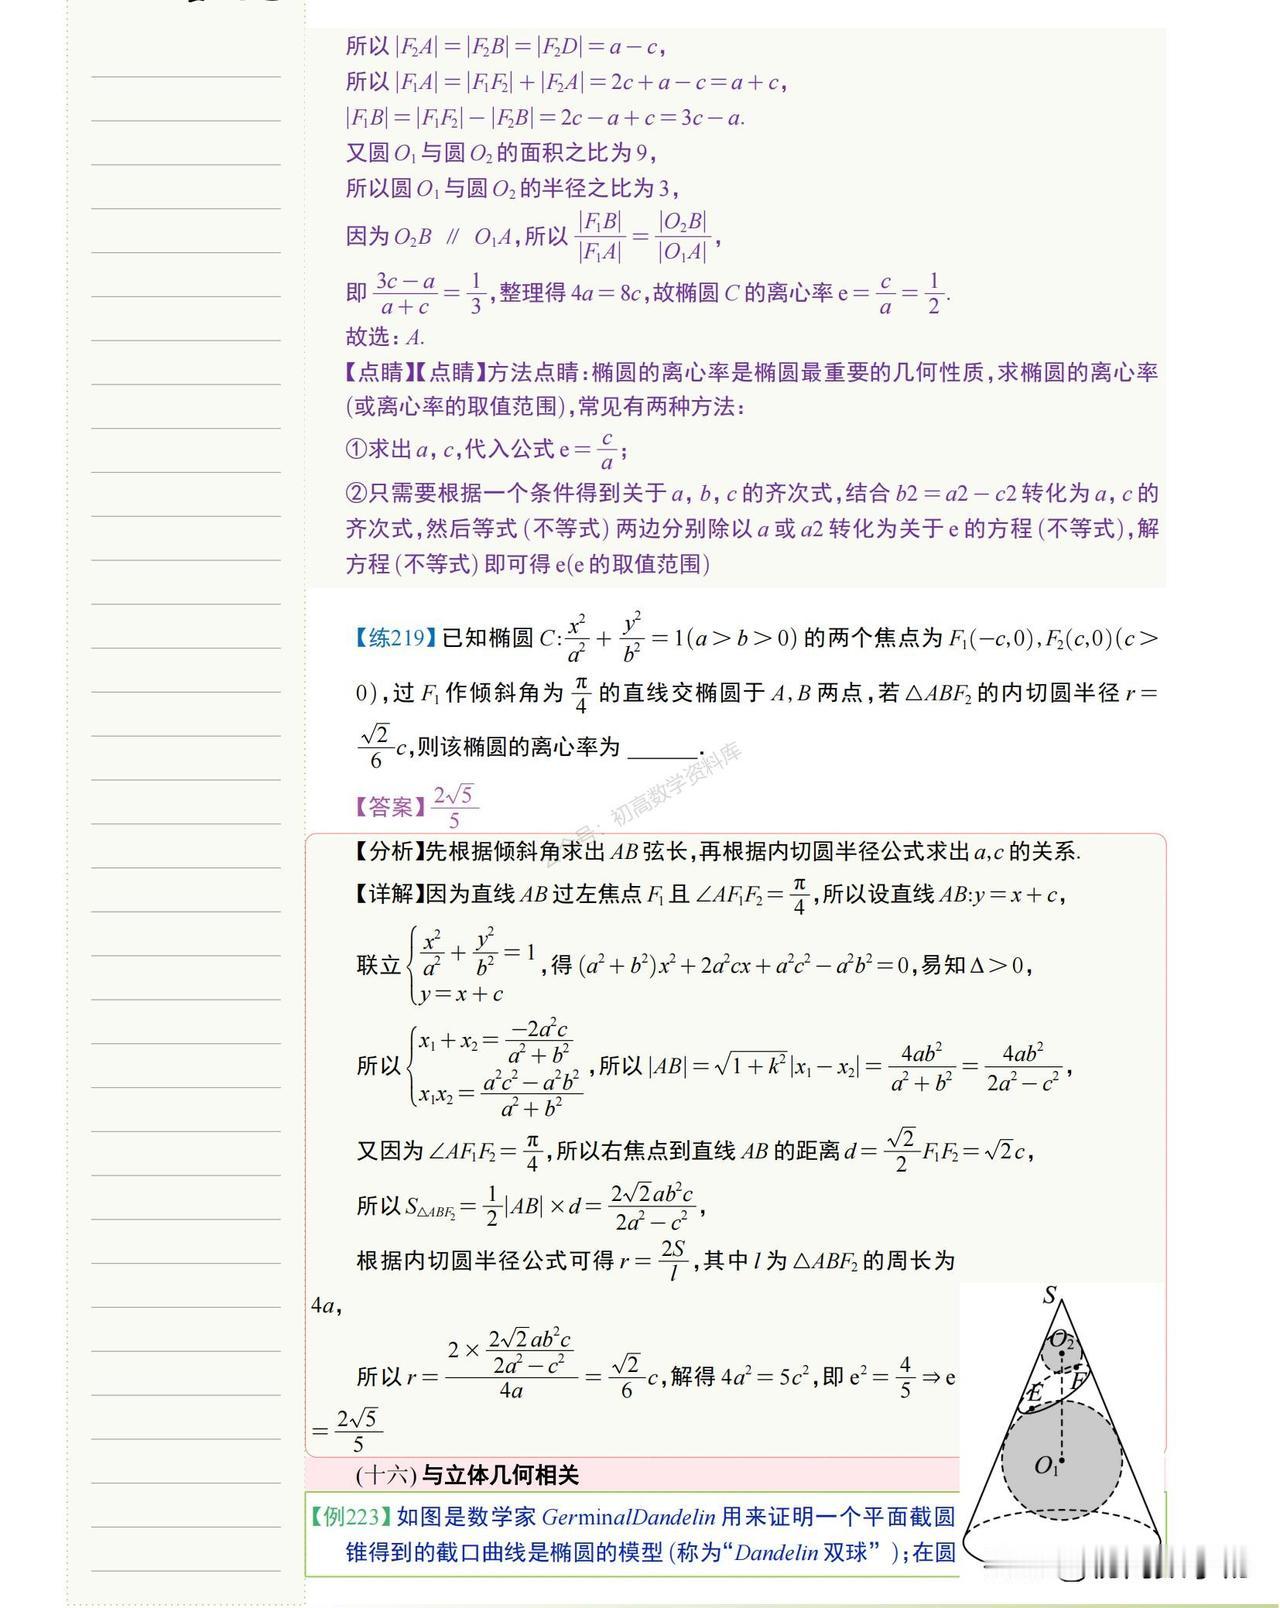 所以|F₂A|=|F₂B|=|F₂D|=a-c,
所以|F₁A|=|F₁F₂|+|F₂A|=2c+a-c=a+c,
|F₁B|=|F₁F₂|-|F₂B|=2c-a+c=3c-a.
又圆O₁与圆O₂的面积之比为9,
所以圆O₁与圆O₂的半径之比为3,
因为O₂B ∥ O₁A,所以|F₁B|/|F₁A|=|O₂B|/|O₁A|,
即(3c-a)/(a+c)=1/3,整理得4a=8c,故椭圆C的离心率e=c/a=1/2.
故选:A.
【点睛】【点睛】方法点睛:椭圆的离心率是椭圆最重要的几何性质,求椭圆的离心率
(或离心率的取值范围),常见有两种方法:
①求出a,c,代入公式e=c/a;
②只需要根据一个条件得到关于a,b,c的齐次式,结合b2=a2-c2转化为a,c的
齐次式,然后等式(不等式)两边分别除以a或a2转化为关于e的方程(不等式),解
方程(不等式)即可得e(e的取值范围)
【练219】已知椭圆C:x²/a²+y²/b²=1(a>b>0)的两个焦点为F₁(-c,0),F₂(c,0)(c>
0),过F₁作倾斜角为π/4的直线交椭圆于A,B两点,若△ABF₂的内切圆半径r=
√2/6c,则该椭圆的离心率为______.
【答案】2√5/5
公众号:初高数学资料库
【分析】先根据倾斜角求出AB弦长,再根据内切圆半径公式求出a,c的关系.
【详解】因为直线AB过左焦点F₁且∠AF₁F₂=π/4,所以设直线AB:y=x+c,
联立{x²/a²+y²/b²=1, y=x+c,得(a²+b²)x²+2a²cx+a²c²-a²b²=0,易知Δ>0,
所以{x₁+x₂=-2a²c/(a²+b²), x₁x₂=(a²c²-a²b²)/(a²+b²),所以|AB|=√(1+k²)|x₁-x₂|=4ab²/(a²+b²)=4ab²/(2a²-c²),
又因为∠AF₁F₂=π/4,所以右焦点到直线AB的距离d=√2/2F₁F₂=√2c,
所以S△ABF₂=1/2|AB|×d=2√2ab²c/(2a²-c²),
根据内切圆半径公式可得r=2S/l,其中l为△ABF₂的周长为
4a,
所以r=(2×2√2ab²c/(2a²-c²))/4a=√2/6c,解得4a²=5c²,即e²=4/5⇒e
=2√5/5
S
O₂
F
E
O₁
(十六)与立体几何相关
【例223】如图是数学家GerminalDandelin用来证明一个平面截圆
锥得到的截口曲线是椭圆的模型(称为“Dandelin双球”);在圆